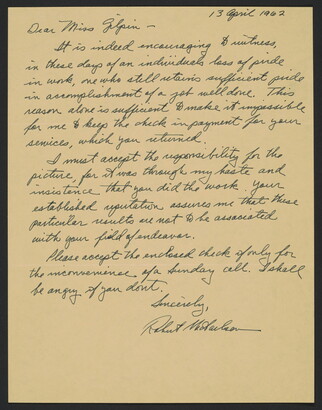 13 April 1962
Dear Miss Gilpin —
It is indeed encouraging to witness,
in these days of an individuals loss of pride
in work, one who still retains sufficient pride
in accomplishment of a job well done. This
reason alone is sufficient to make it impossible
for me to keep the check in payment for your
services, which you returned.
I must accept the responsibility for the
picture, for it was through my haste and
insistence that you did the work. Your
established reputation assures me that these
particular results are not to be associated
with your field of endeavor.
Please accept the enclosed check if only for
the inconvenience of a Sunday call. I shall
be angry if you don't.
Sincerely,
Robert